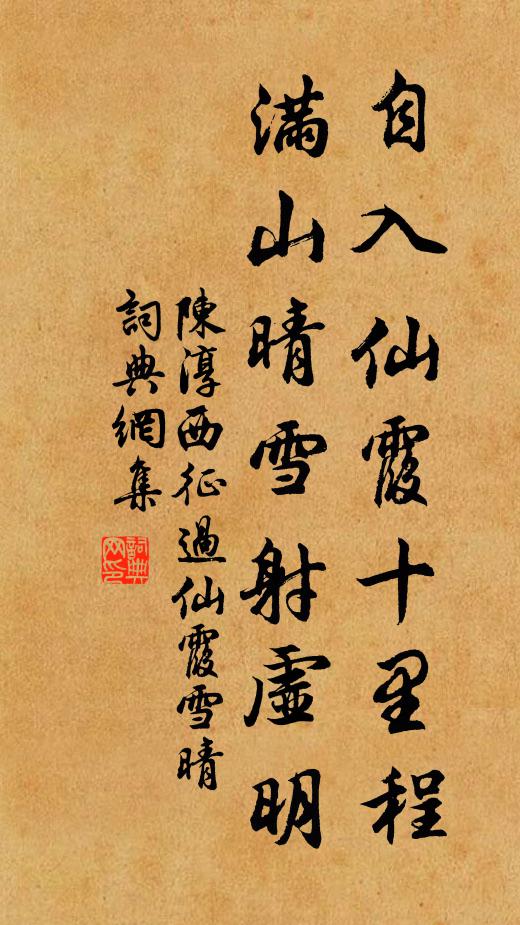 自入仙霞十里程
滿山晴雪射虛明
陳淳西征過仙霞雪晴
詞典網集
詞典
网印